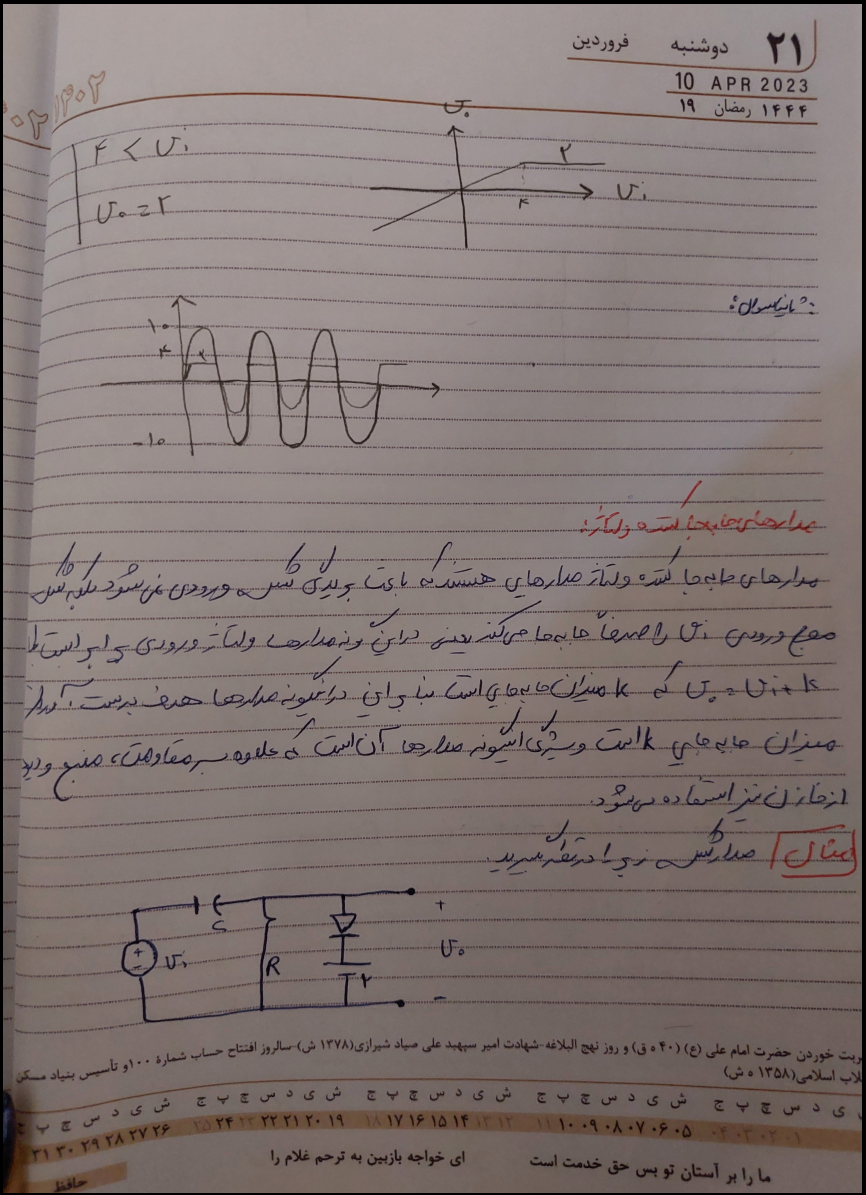 ۲۱ دوشنبه فروردین
10 APR 2023
۱۴۴۴ رمضان ۱۹
۱۴۰۲
۴ < Vi
Vo = ۲
Vo
۲
۴
Vi
۱۰
۴
۲
-۱۰
مدارهای جابه‌جا کننده ولتاژ:
مدارهای جابه‌جا کننده ولتاژ مدارهایی هستند که باعث بریدگی شکل ورودی نمی‌شود بلکه شکل
موج ورودی Vi را صرفاً جابه‌جا می‌کند یعنی در این گونه مدارها ولتاژ ورودی برابر است با
Vo = Vi + k که k میزان جابه‌جایی است بنابراین در اینگونه مدارها هدف بدست آوردن
میزان جابه‌جایی k است ویژگی اینگونه مدارها آن است که علاوه بر مقاومت، منبع و دیود
از خازن نیز استفاده می‌شود.
مثال مدار شکل زیر را در نظر بگیرید.
+
-
Vi
C
R
۲
+
Vo
-
ربت خوردن حضرت امام علی (ع) (۴۰ ه ق) و روز نهج البلاغه-شهادت امیر سپهبد علی صیاد شیرازی(۱۳۷۸ ش)-سالروز افتتاح حساب شمارهٔ ۱۰۰و تأسیس بنیاد مسکن
لاب اسلامی(۱۳۵۸ ه ش)
ش ی د س چ پ ج ش ی د س چ پ ج ش ی د س چ پ ج ش ی د س چ پ ج
۰۱ ۰۲ ۰۳ ۰۴ ۰۵ ۰۶ ۰۷ ۰۸ ۰۹ ۱۰ ۱۱ ۱۲ ۱۳ ۱۴ ۱۵ ۱۶ ۱۷ ۱۸ ۱۹ ۲۰ ۲۱ ۲۲ ۲۳ ۲۴ ۲۵ ۲۶ ۲۷ ۲۸ ۲۹ ۳۰ ۳۱
ما را بر آستان تو بس حق خدمت است ای خواجه بازبین به ترحم غلام را
حافظ